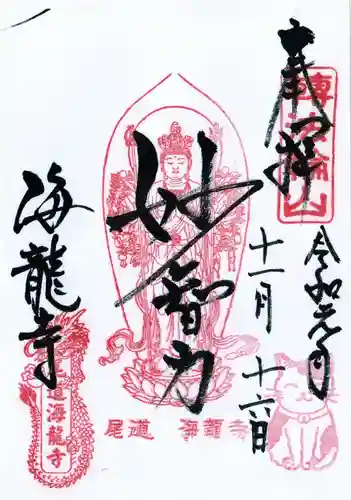 奉拝
令和元年
十一月
十六日
妙智力
海龍寺
尾道 海龍寺
尾道海龍寺